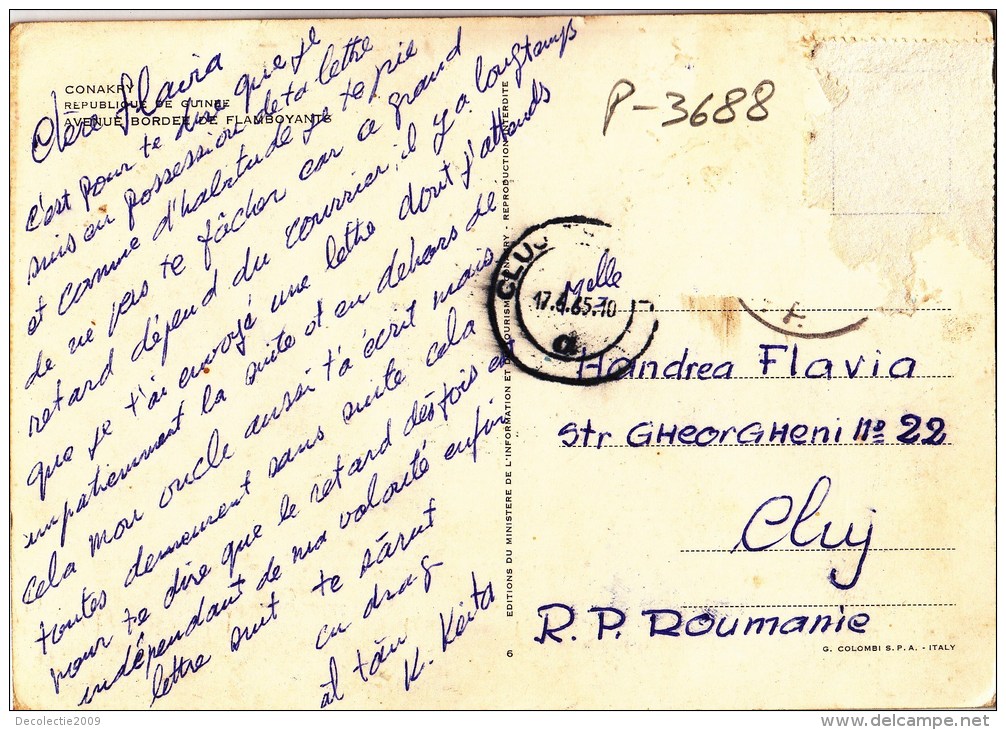 CONAKRY
REPUBLIQUE DE GUINEE
AVENUE BORDEE DE FLAMBOYANTS
Chère Flavia
c'est pour te dire que je
suis en possession de ta lettre
et comme d'habitude je te prie
de ne pas te fâcher car ce grand
retard dépend du courrier, il y a longtemps
que je t'ai envoyé une lettre dont j'attends
impatiemment la suite et en dehors de
cela mon oncle aussi t'a écrit mais
toutes demeurent sans suite cela
pour te dire que le retard des fois est
indépendant de ma volonté enfin
lettre suit te sărut
cu drag
al tău
K. Keita
EDITIONS DU MINISTERE DE L'INFORMATION ET DU TOURISME CONAKRY - REPRODUCTION INTERDITE
6
P-3688
CLUJ
17.6.65.-10
Melle
Handrea Flavia
Str GHeorGHeni No 22
Cluj
R. P. Roumanie
G. COLOMBI S.P.A. - ITALY
Decolectie2009
www.delcampe.net